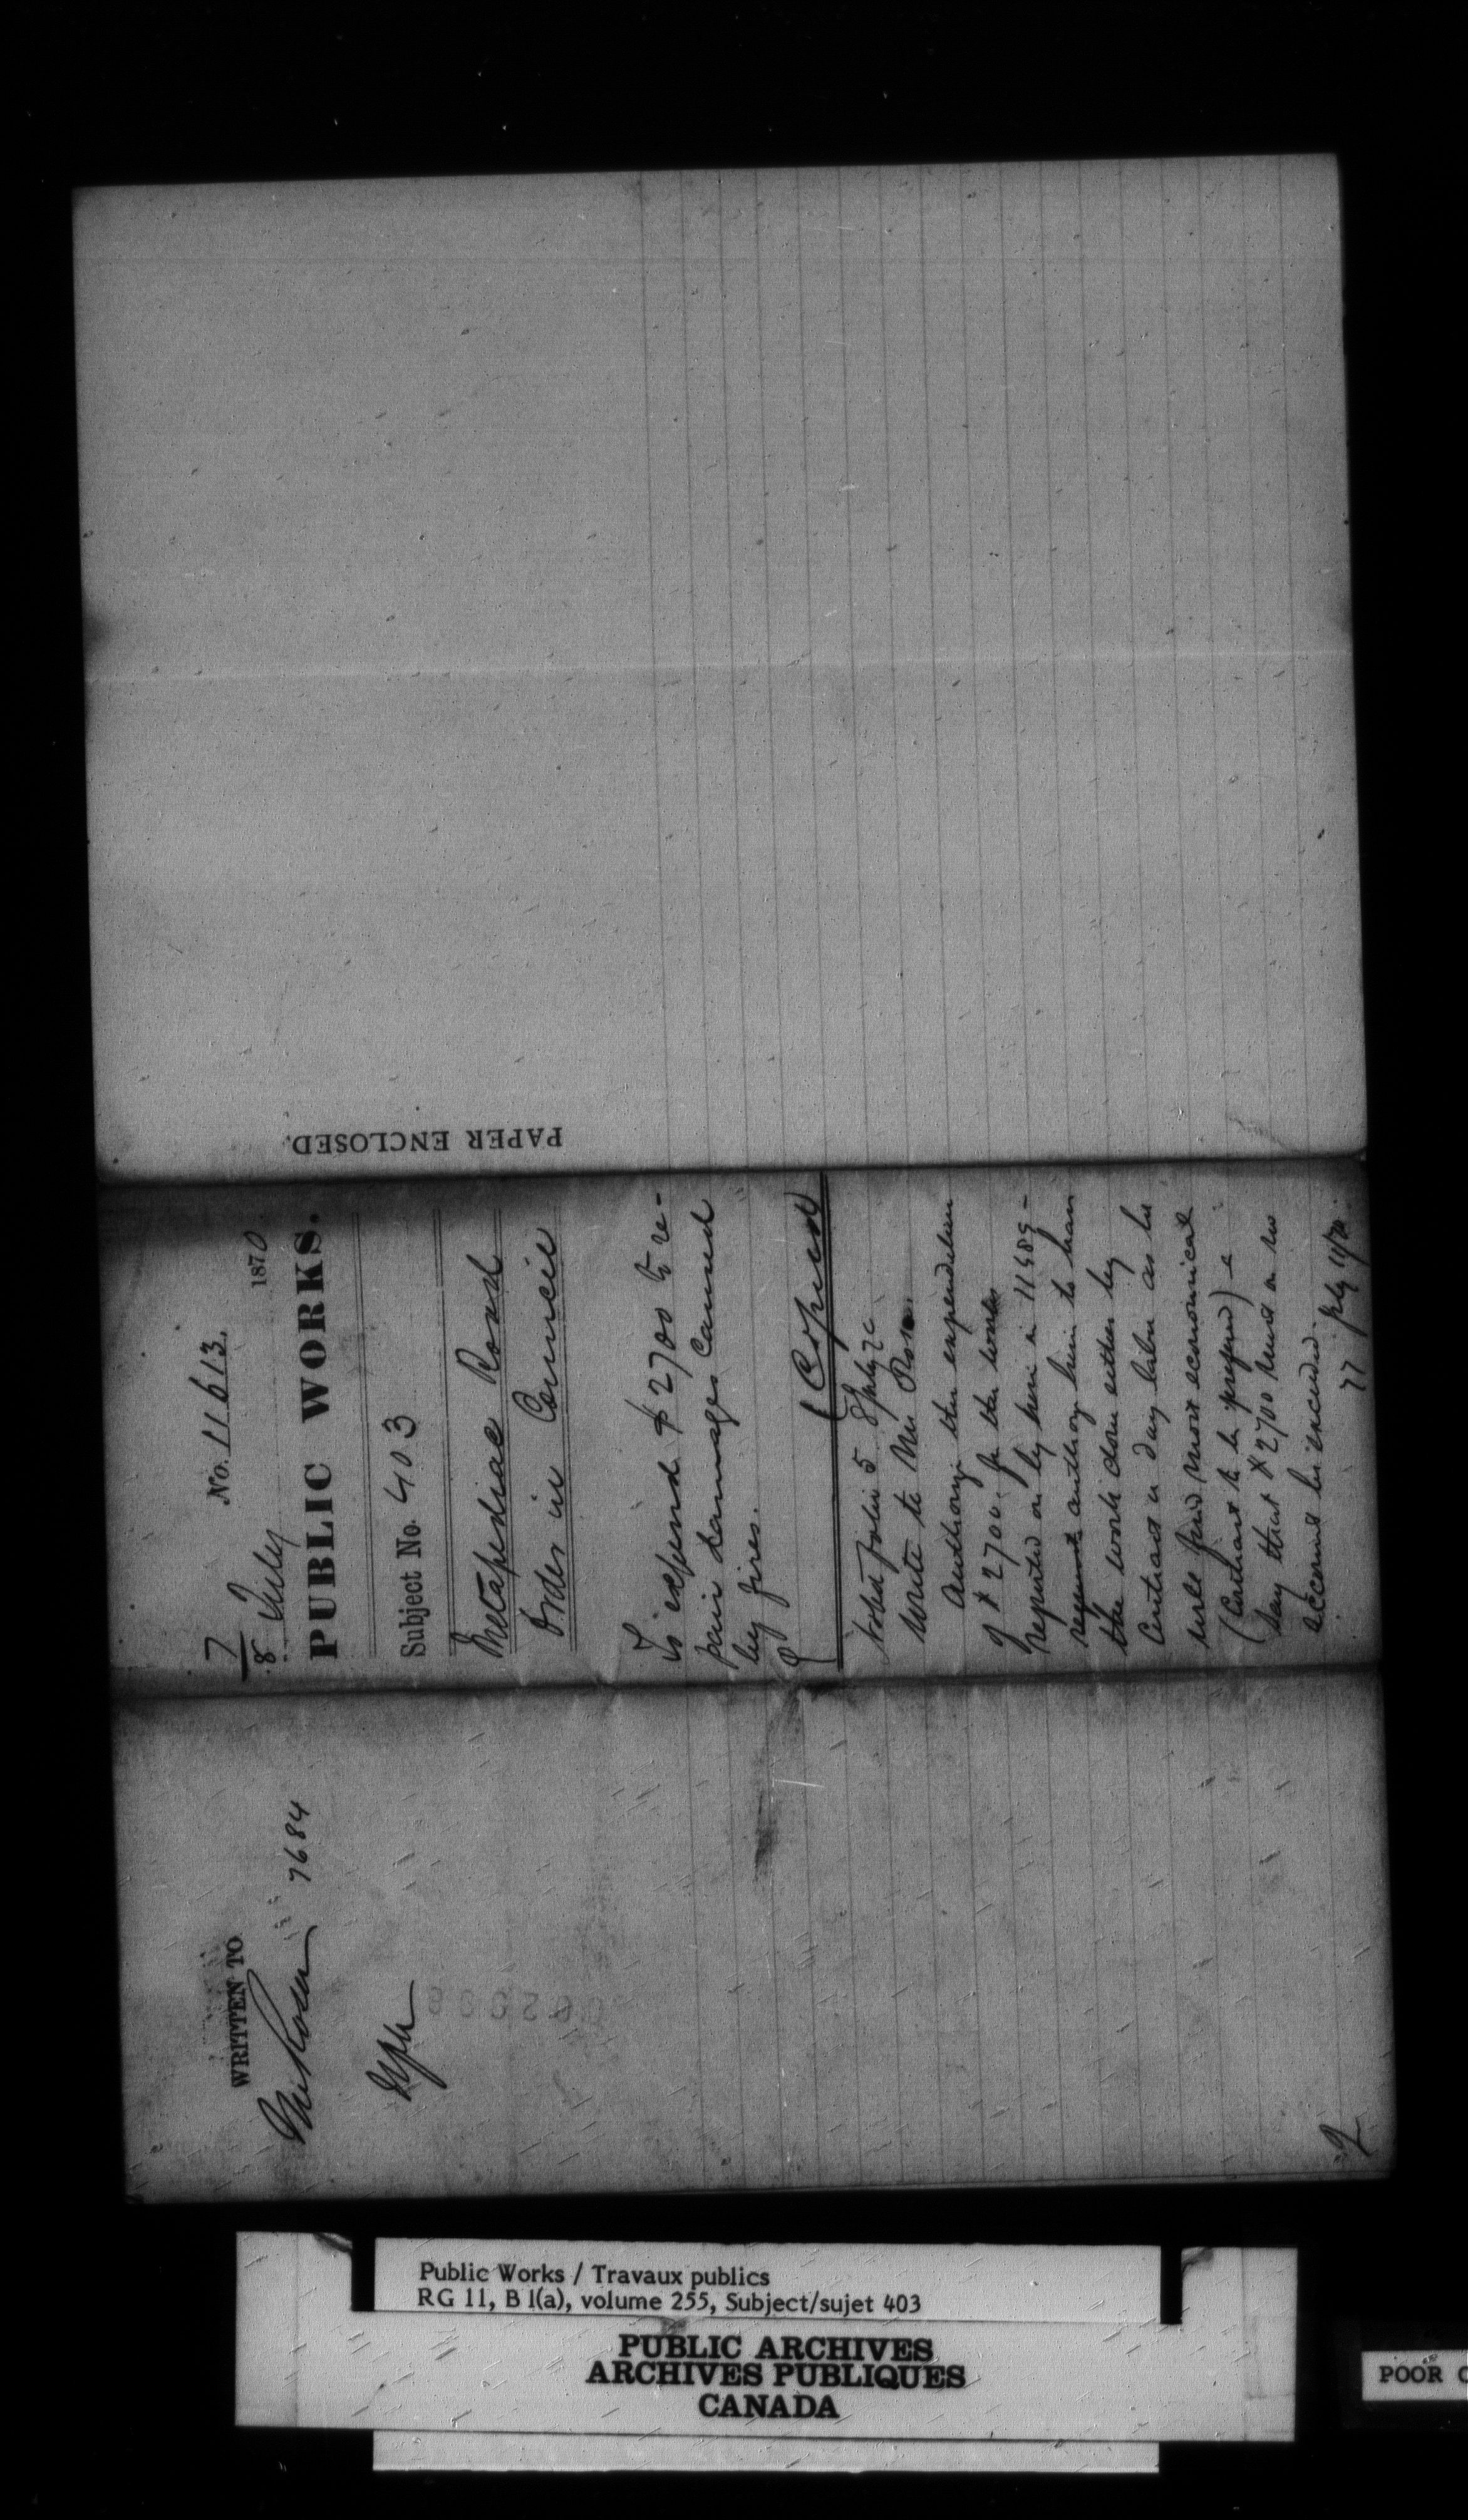 PAPER ENCLOSED.
No. 11613.
7/8 July 1870
PUBLIC WORKS.
Subject No. 403
Metapediac Road
Order in Council
To expend $2700 to re-
pair damages caused
by fires.
(Copied)
Noted folio 5 8 July 70
Write to Mr Rose
Authorize the expenditure
of $2700. for the works
reported on by him in 11589 -
request authorize him to have
the work done either by
Contract or day labor as he
will find most economical
(Contract to be prefered) &
say that $2700 must on no
account be exceeded.
July 11/70
WRITTEN TO
Mr Rose 7684
2
Public Works / Travaux publics
RG 11, B 1(a), volume 255, Subject/sujet 403
PUBLIC ARCHIVES
ARCHIVES PUBLIQUES
CANADA
POOR